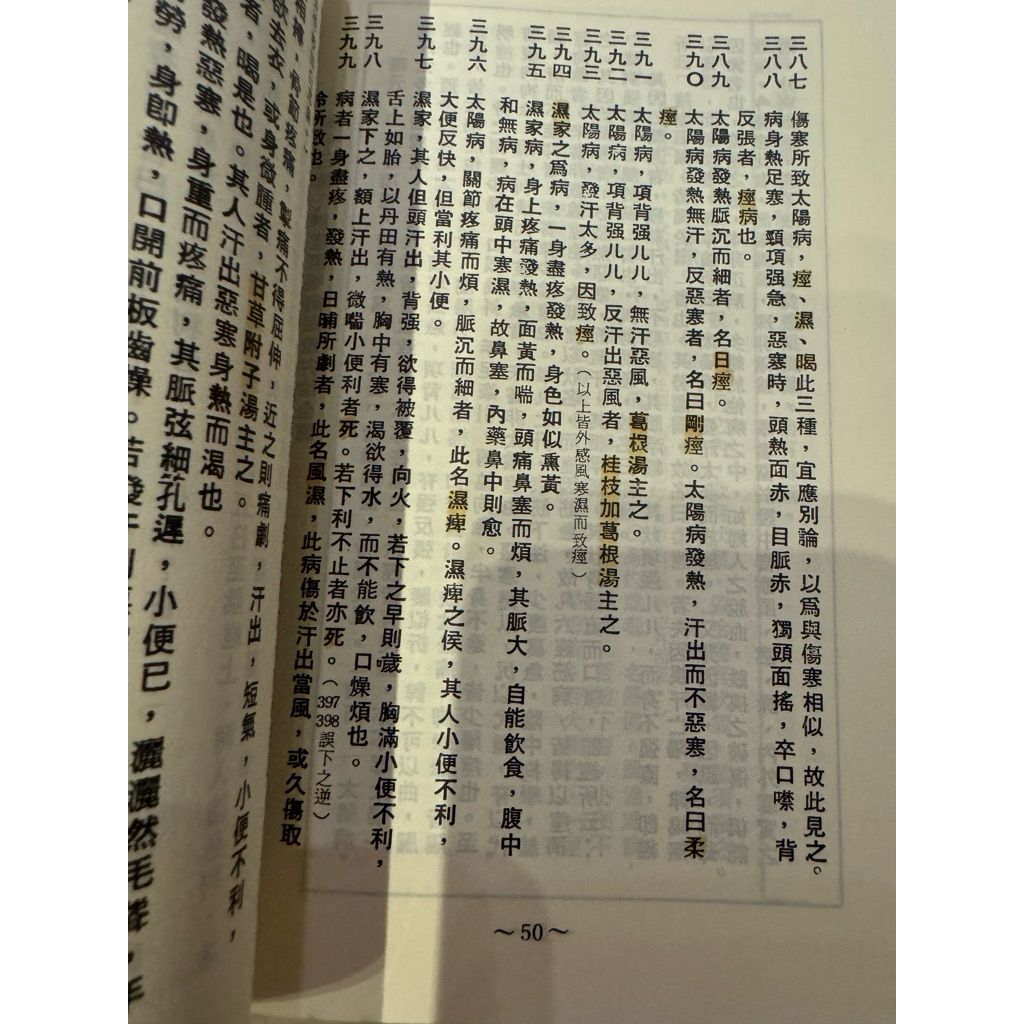 三八七　傷寒所致太陽病，痙、濕、暍此三種，宜應別論，以爲與傷寒相似，故此見之。
三八八　病身熱足寒，頸項强急，惡寒時，頭熱面赤，目脈赤，獨頭面搖，卒口噤，背
反張者，痙病也。
三八九　太陽病發熱脈沉而細者，名曰痙。
三九〇　太陽病發熱無汗，反惡寒者，名曰剛痙。太陽病發熱，汗出而不惡寒，名曰柔
痙。
三九一　太陽病，項背强儿儿，無汗惡風，葛根湯主之。
三九二　太陽病，項背强儿儿，反汗出惡風者，桂枝加葛根湯主之。
三九三　太陽病，發汗太多，因致痙。（以上皆外感風寒濕而致痙）
三九四　濕家之爲病，一身盡疼發熱，身色如似熏黃。
三九五　濕家病，身上疼痛發熱，面黃而喘，頭痛鼻塞而煩，其脈大，自能飲食，腹中
和無病，病在頭中寒濕，故鼻塞，內藥鼻中則愈。
三九六　太陽病，關節疼痛而煩，脈沉而細者，此名濕痺。濕痺之侯，其人小便不利，
大便反快，但當利其小便。
三九七　濕家，其人但頭汗出，背强，欲得被覆，向火，若下之早則噦，胸滿小便不利，
舌上如胎，以丹田有熱，胸中有寒，渴欲得水，而不能飲，口燥煩也。
三九八　濕家下之，額上汗出，微喘小便利者死。若下利不止者亦死。（397 398 誤下之逆）
三九九　病者一身盡疼，發熱，日晡所劇者，此名風濕，此病傷於汗出當風，或久傷取
冷所致也。
～50～
骨節疼痛，掣痛不得屈伸，近之則痛劇，汗出，短氣，小便不利，
欲去衣，或身微腫者，甘草附子湯主之。
者，暍是也。其人汗出惡寒身熱而渴也。
發熱惡寒，身重而疼痛，其脈弦細孔遲，小便已，灑灑然毛
勞，身即熱，口開前板齒燥。若發